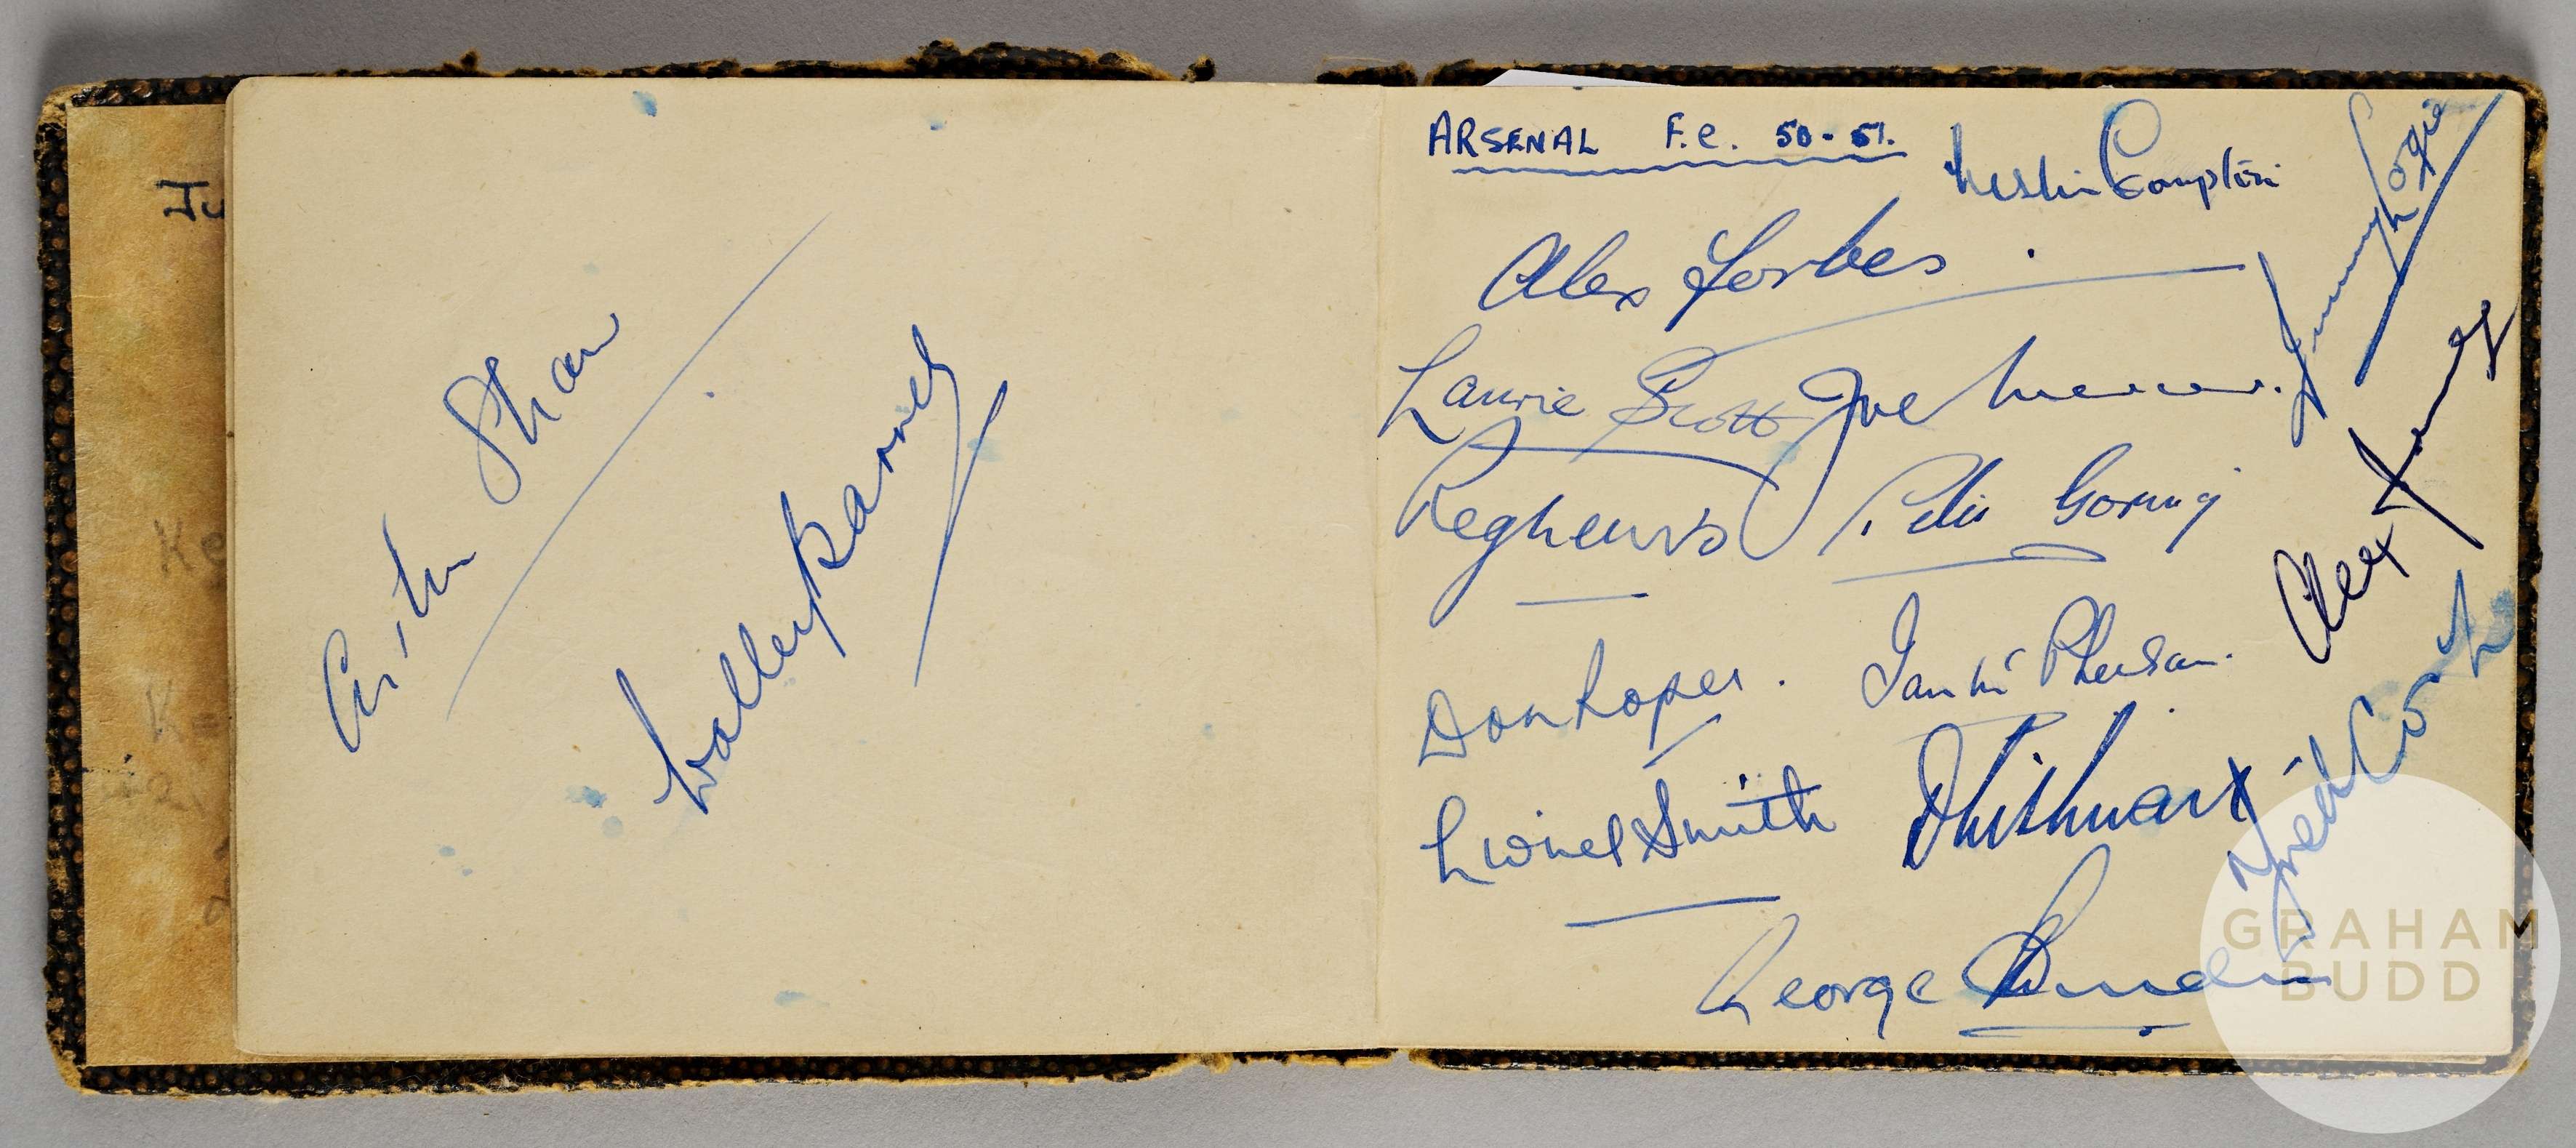 Ju
Ke
Ke
Arthur Shaw
Walley Barnes
ARSENAL F.C. 50-51.
Leslie Compton
Jimmy Logie
Alex Forbes
Laurie Scott Joe Mercer.
Alex James
Reg Lewis Peter Goring
Don Roper. Ian McPherson.
Lionel Smith G Swindin
George
GRAHAM
BUDD